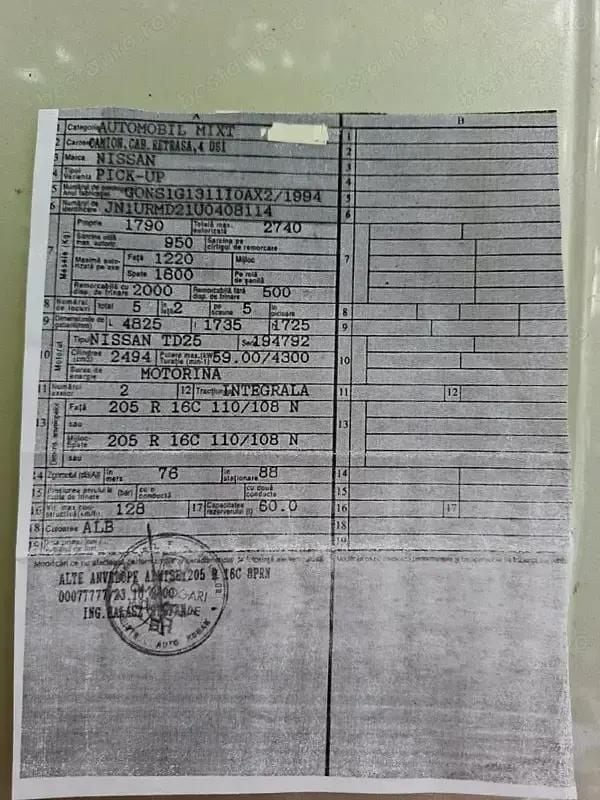 A B
1 Categoria AUTOMOBIL MIXT 1
2 Caros CAMION,CAB.RETRASA,4 USI 2
3 Marca NISSAN 3
4 Tip Varianta PICK-UP 4
5 Numărul de Anul fabricaţiei GONS1G1311I0AX2/1994 5
6 Numărul de identificare JN1URMD21U0408114 6
7 Masele (Kg) Proprie 1790 Totală max. autorizată 2740 7
Sarcina utilă max. autoriz. 950 Sarcina pe cîrligul de remorcare
Maximă autorizată pe axe Faţă 1220 Mijloc
Spate 1600 Pe rolă de şenilă
Remorcabilă cu disp. de frînare 2000 Remorcabilă fără disp. de frînare 500
8 Numărul de locuri total 5 în faţă 2 pe scaune 5 în picioare 8
9 Dimensiunile de L 4825 l 1735 î 1725 9
10 Motorul Tipul NISSAN TD25 Seria 194792 10
Cilindree (cm3) 2494 Putere max.(kW) turaţie (min-1) 59.00/4300
Sursa de energie MOTORINA
11 Numărul axelor 2 12 Tracţiunea INTEGRALA 11 12
13 Faţă 205 R 16C 110/108 N 13
sau
Mijloc-Spate 205 R 16C 110/108 N
sau
14 Zgomotul (dB(A)) în mers 76 în staţionare 88 14
15 (bar) cu o conductă cu două conducte 15
16 Vit. max. constructivă (km/h) 128 17 Capacitatea rezervorului (l) 60.0 16 17
18 Culoarea ALB 18
19 19
Modificări ce nu afectează
ALTE ANVELOPE ADMISE:205 R 16C 8PRN
00077777/23.10.
ING.
AUTO ROMAN